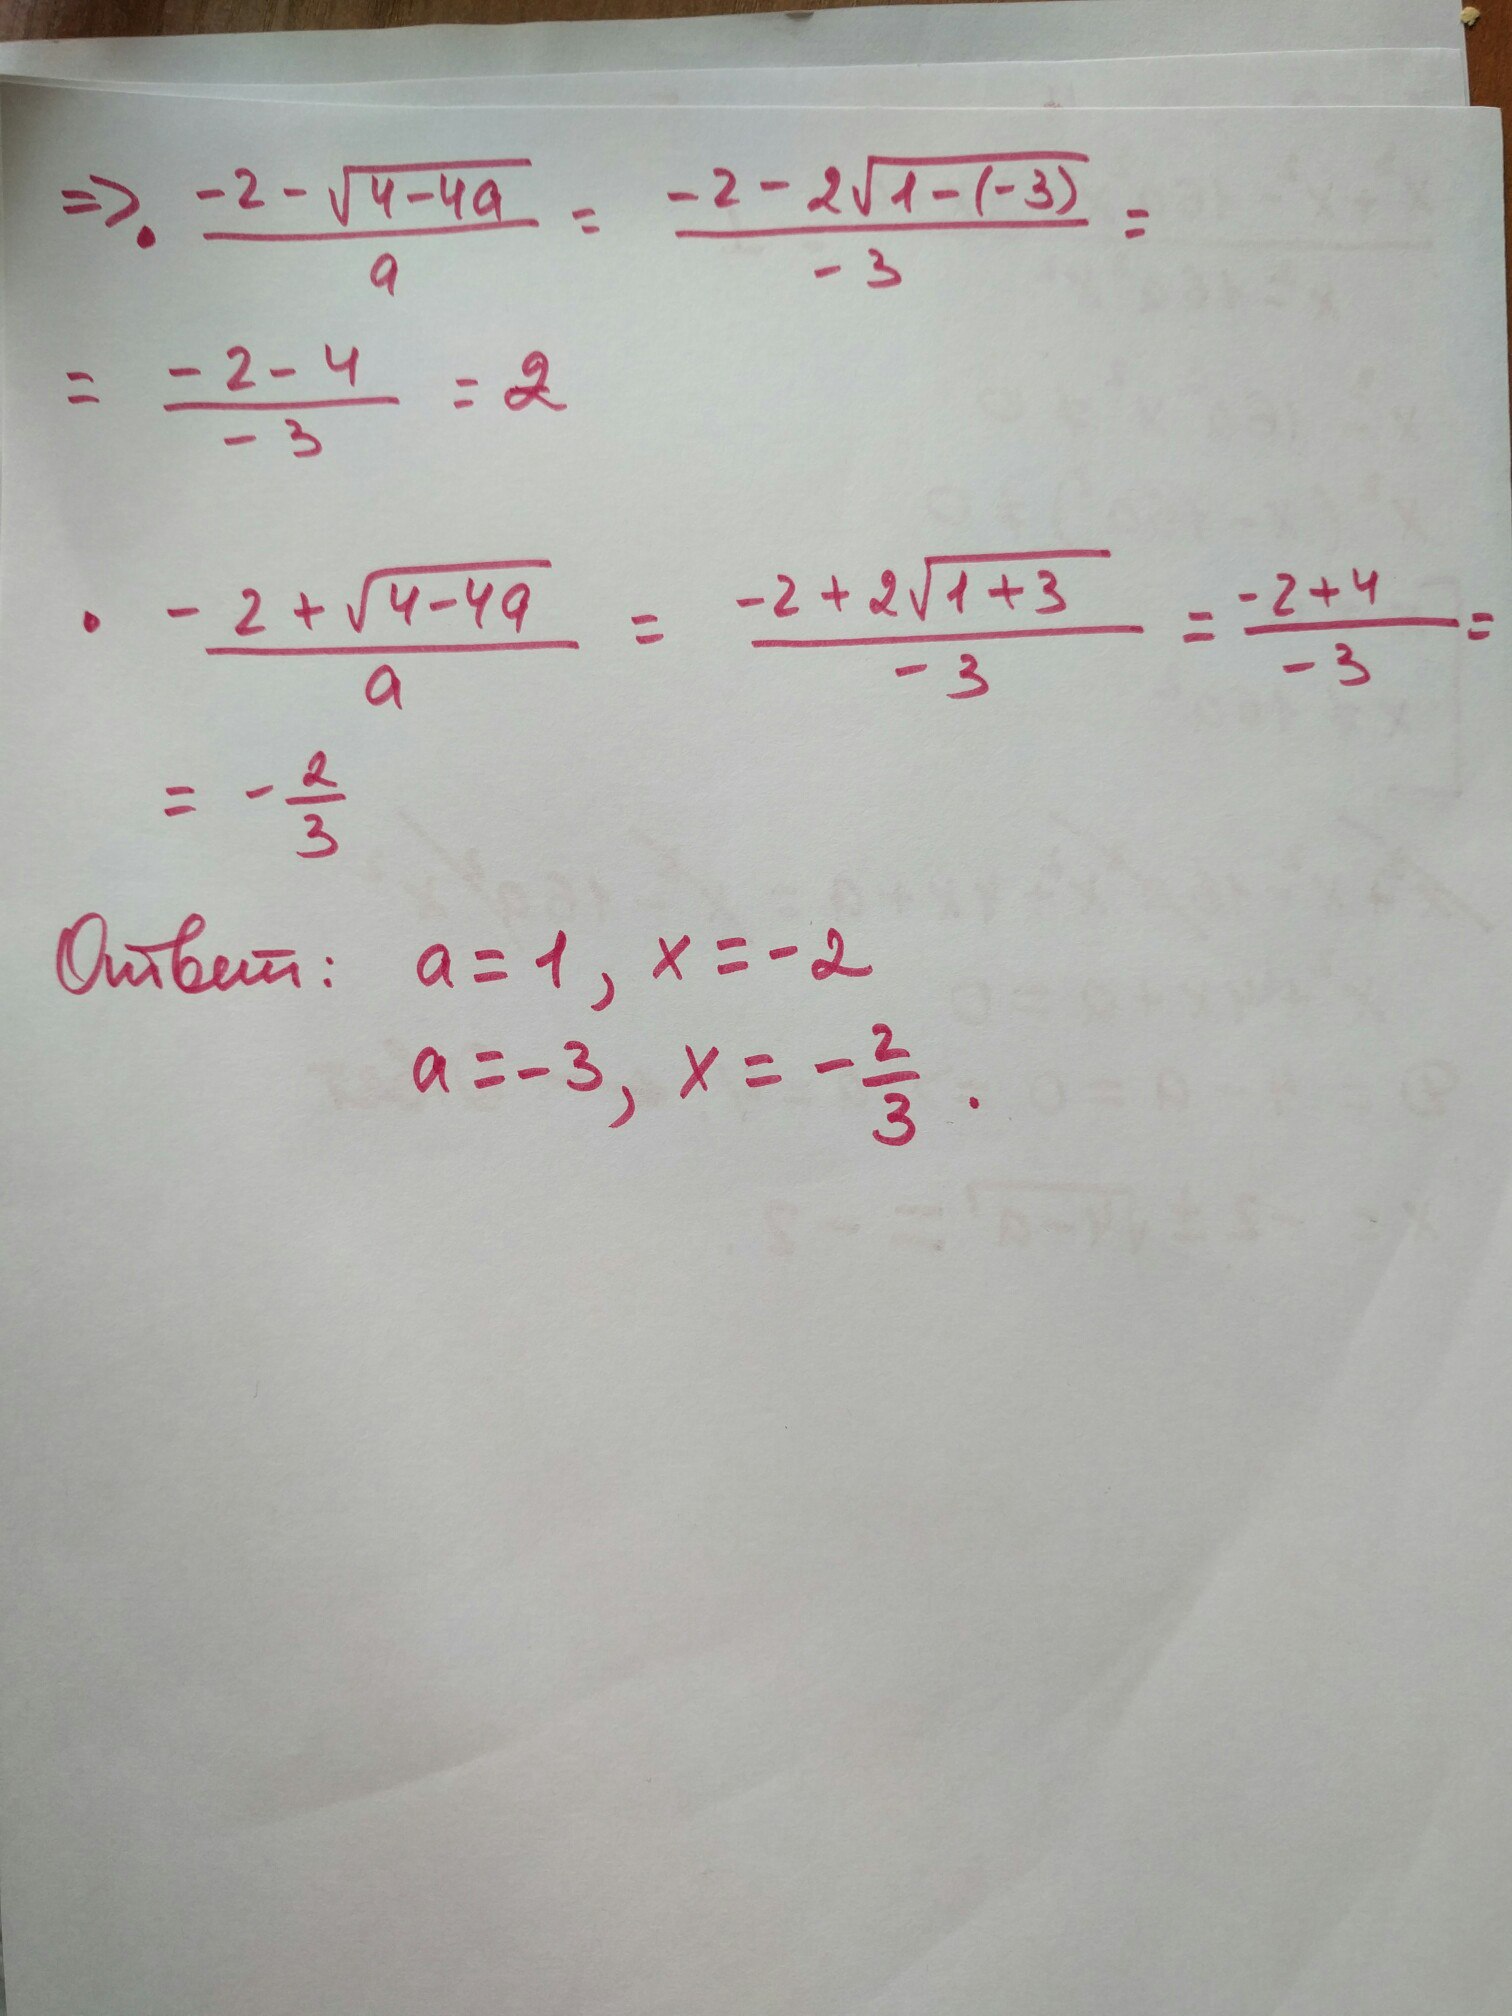 => • (-2-√(4-4a))/a = (-2-2√(1-(-3)))/(-3) =
= (-2-4)/(-3) = 2
• (-2+√(4-4a))/a = (-2+2√(1+3))/(-3) = (-2+4)/(-3) =
= -2/3
Ответ: a=1, x=-2
a=-3, x=-2/3.